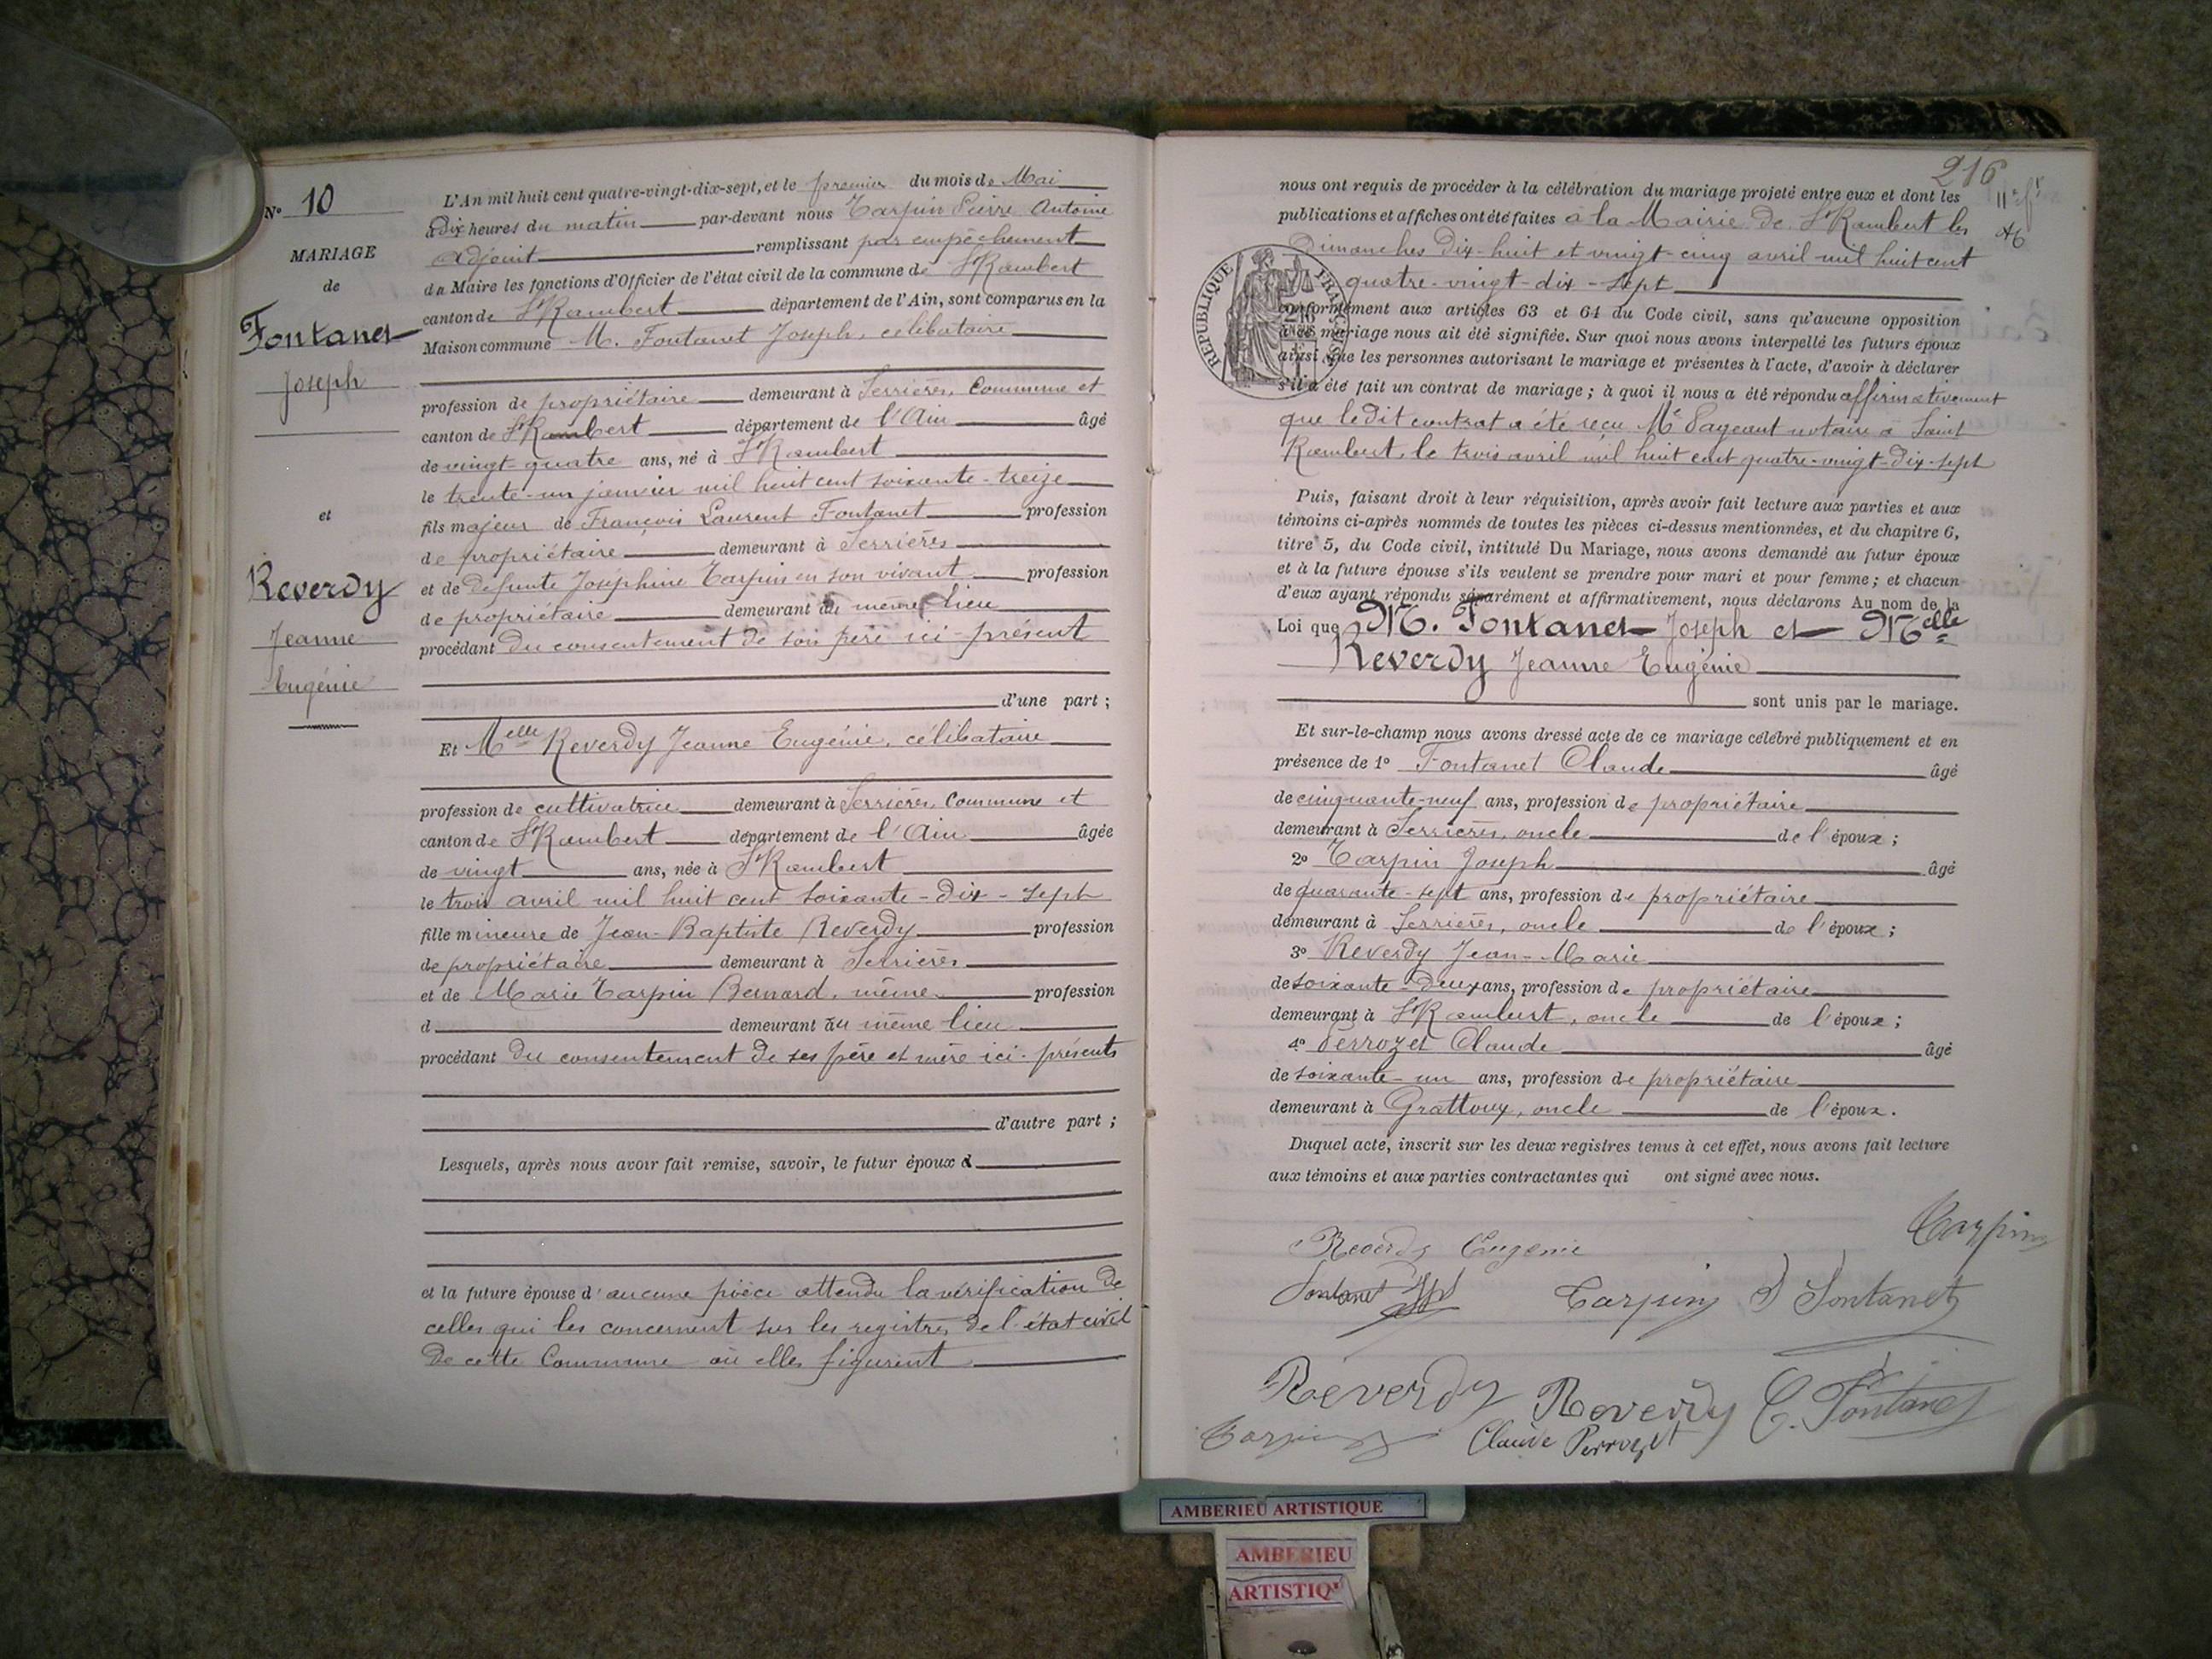 N° 10
MARIAGE
de
Fontanet
Joseph
et
Reverdy
Jeanne
Eugénie
L'An mil huit cent quatre-vingt-dix-sept, et le premier du mois de Mai
à dix heures du matin par-devant nous Tarpin Pierre Antoine
adjoint remplissant par empêchement
du Maire les fonctions d'Officier de l'état civil de la commune de St Rambert
canton de St Rambert département de l'Ain, sont comparus en la
Maison commune M. Fontanet Joseph, célibataire
profession de propriétaire demeurant à Serrières, Commune et
canton de St Rambert département de l'Ain âgé
de vingt-quatre ans, né à St Rambert
le trente-un janvier mil huit cent soixante-treize
fils majeur de François Laurent Fontanet profession
de propriétaire demeurant à Serrières
et de défunte Joséphine Tarpin en son vivant profession
de propriétaire demeurant au même lieu
procédant du consentement de son père ici-présent
d'une part ;
Et Melle Reverdy Jeanne Eugénie, célibataire
profession de cultivatrice demeurant à Serrières, Commune et
canton de St Rambert département de l'Ain âgée
de vingt ans, née à St Rambert
le trois avril mil huit cent soixante-dix-sept
fille mineure de Jean-Baptiste Reverdy profession
de propriétaire demeurant à Serrières
et de Marie Tarpin Bernard, même profession
d demeurant au même lieu
procédant du consentement de ses père et mère ici-présents
d'autre part ;
Lesquels, après nous avoir fait remise, savoir, le futur époux d
et la future épouse d'aucune pièce attendu la vérification de
celles qui les concernent sur les registres de l'état civil
de cette Commune où elles figurent
216
nous ont requis de procéder à la célébration du mariage projeté entre eux et dont les
publications et affiches ont été faites à la Mairie de St Rambert les
Dimanches dix-huit et vingt-cinq avril mil huit cent
quatre-vingt-dix-sept
RÉPUBLIQUE FRANÇAISE
conformément aux articles 63 et 64 du Code civil, sans qu'aucune opposition
à ce mariage nous ait été signifiée. Sur quoi nous avons interpellé les futurs époux
ainsi que les personnes autorisant le mariage et présentes à l'acte, d'avoir à déclarer
s'il a été fait un contrat de mariage ; à quoi il nous a été répondu affirmativement
que le dit contrat a été reçu Me Pageaut notaire à Saint
Rambert, le trois avril mil huit cent quatre-vingt-dix-sept
Puis, faisant droit à leur réquisition, après avoir fait lecture aux parties et aux
témoins ci-après nommés de toutes les pièces ci-dessus mentionnées, et du chapitre 6,
titre 5, du Code civil, intitulé Du Mariage, nous avons demandé au futur époux
et à la future épouse s'ils veulent se prendre pour mari et pour femme ; et chacun
d'eux ayant répondu séparément et affirmativement, nous déclarons Au nom de la
Loi que M. Fontanet Joseph et Melle
Reverdy Jeanne Eugénie
sont unis par le mariage.
Et sur-le-champ nous avons dressé acte de ce mariage célébré publiquement et en
présence de 1° Fontanet Claude âgé
de cinquante-neuf ans, profession de propriétaire
demeurant à Serrières, oncle de l'époux ;
2° Tarpin Joseph âgé
de quarante-sept ans, profession de propriétaire
demeurant à Serrières, oncle de l'époux ;
3° Reverdy Jean-Marie
de soixante-deux ans, profession de propriétaire
demeurant à St Rambert, oncle de l'époux ;
4° Perrozet Claude âgé
de soixante-un ans, profession de propriétaire
demeurant à Grattoux, oncle de l'époux.
Duquel acte, inscrit sur les deux registres tenus à cet effet, nous avons fait lecture
aux témoins et aux parties contractantes qui ont signé avec nous.
Tarpin
Reverdy Eugenie
Fontanet Jph Tarpin Fontanet
Reverdy Reverdy C. Fontanet
Tarpin Claude Perrozet
AMBERIEU ARTISTIQUE
AMBERIEU
ARTISTIQ